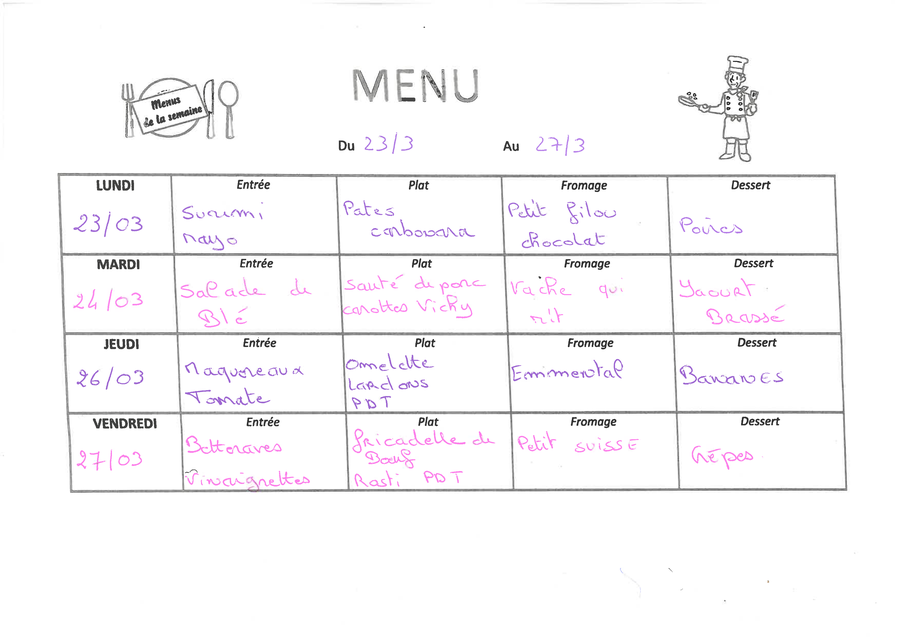 Menus
de la semaine
MENU
Du 23/3 Au 27/3
LUNDI Entrée Plat Fromage Dessert
23/03
Surimi
mayo
Pates
carbonara
Petit filou
chocolat
Poires
MARDI Entrée Plat Fromage Dessert
24/03
Salade de
Blé
Sauté de porc
carottes Vichy
Vache qui
rit
Yaourt
Brassé
JEUDI Entrée Plat Fromage Dessert
26/03
Maquereaux
Tomate
Omelette
Lardons
PDT
Emmental
Bananes
VENDREDI Entrée Plat Fromage Dessert
27/03
Bettraves
Vinaigrettes
fricadelle de
Bœuf
Rasti PDT
Petit suisse
Crêpes